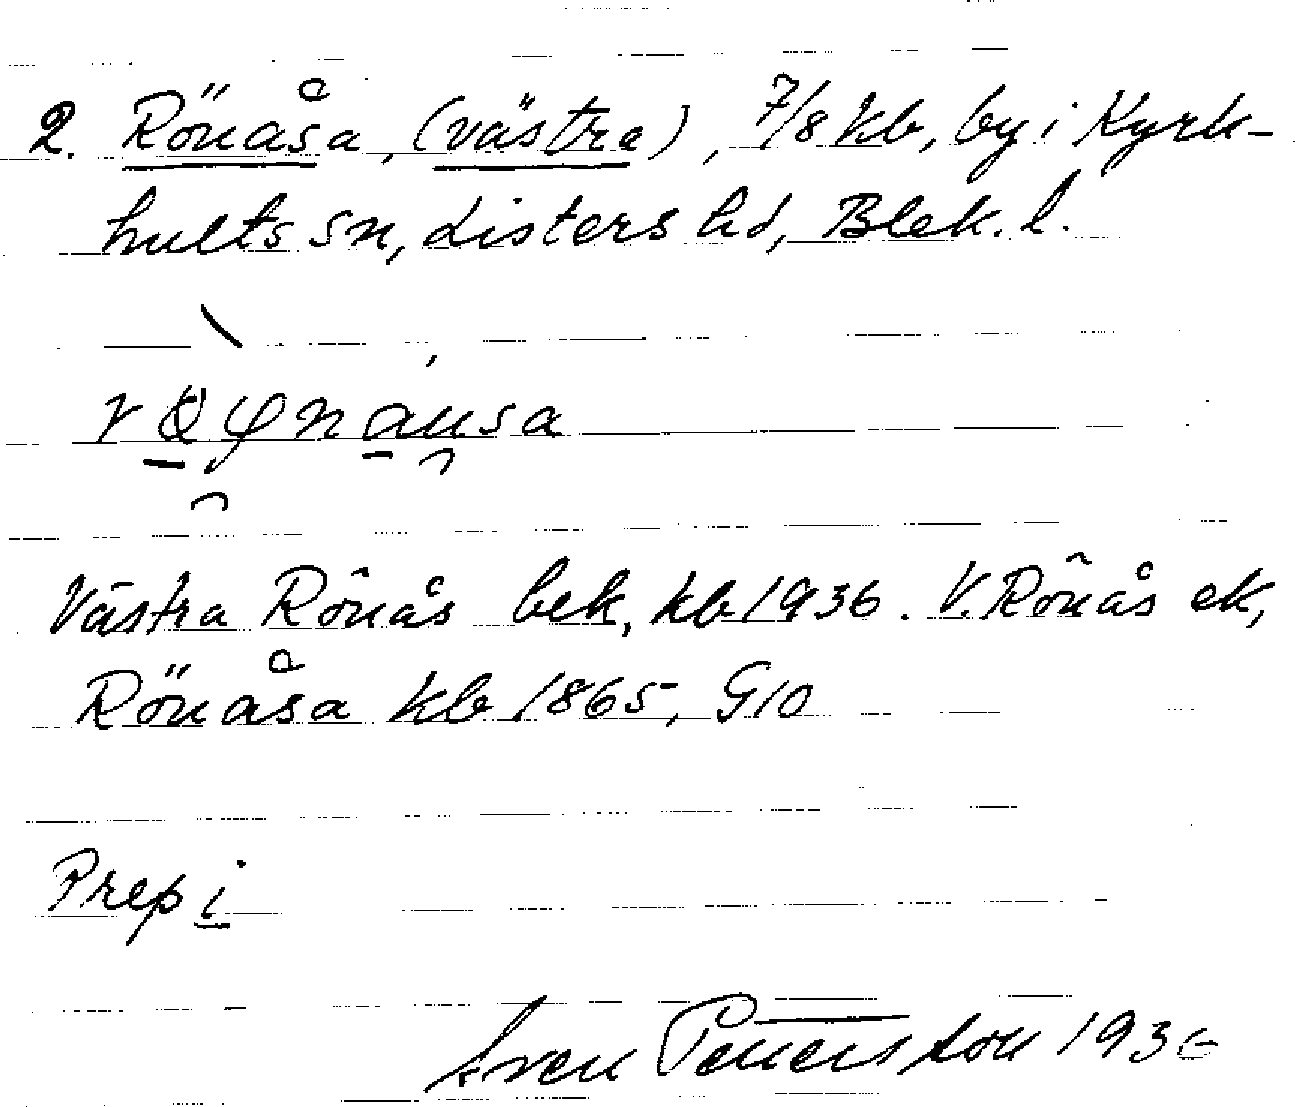 2. Rönåsa, (västra), 7/8 kb, by i Kyrk-
hults sn, Listers hd, Blek. l.
Västra Rönås bek, kb 1936. V. Rönås ek,
Rönåsa kb 1865, G10
Prep i
Sven Pettersson 1936